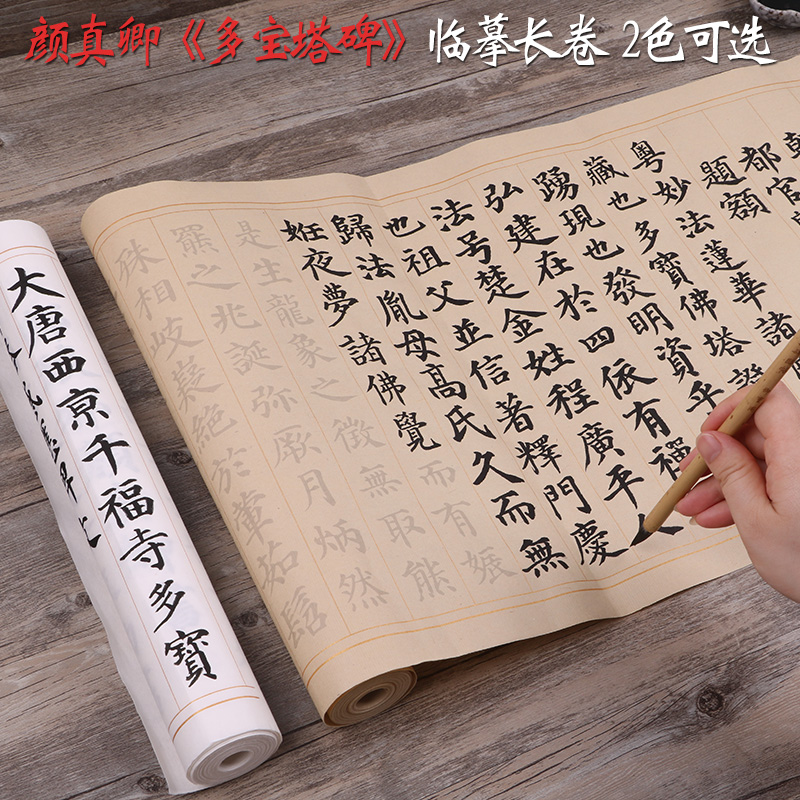 颜真卿《多宝塔碑》临摹长卷 2色可选
都官
題額
粤妙法蓮華諸
藏也多寶佛塔證
踴現也發明資乎
弘建在於四依有福
法号楚金姓程廣平人
也祖父並信著釋門慶
歸法胤母高氏久而無
姙夜夢諸佛覺而有娠
是生龍象之徵無取熊
羆之兆誕弥厥月炳然
殊相岐嶷絶於葷茹髫
大唐西京千福寺多寶